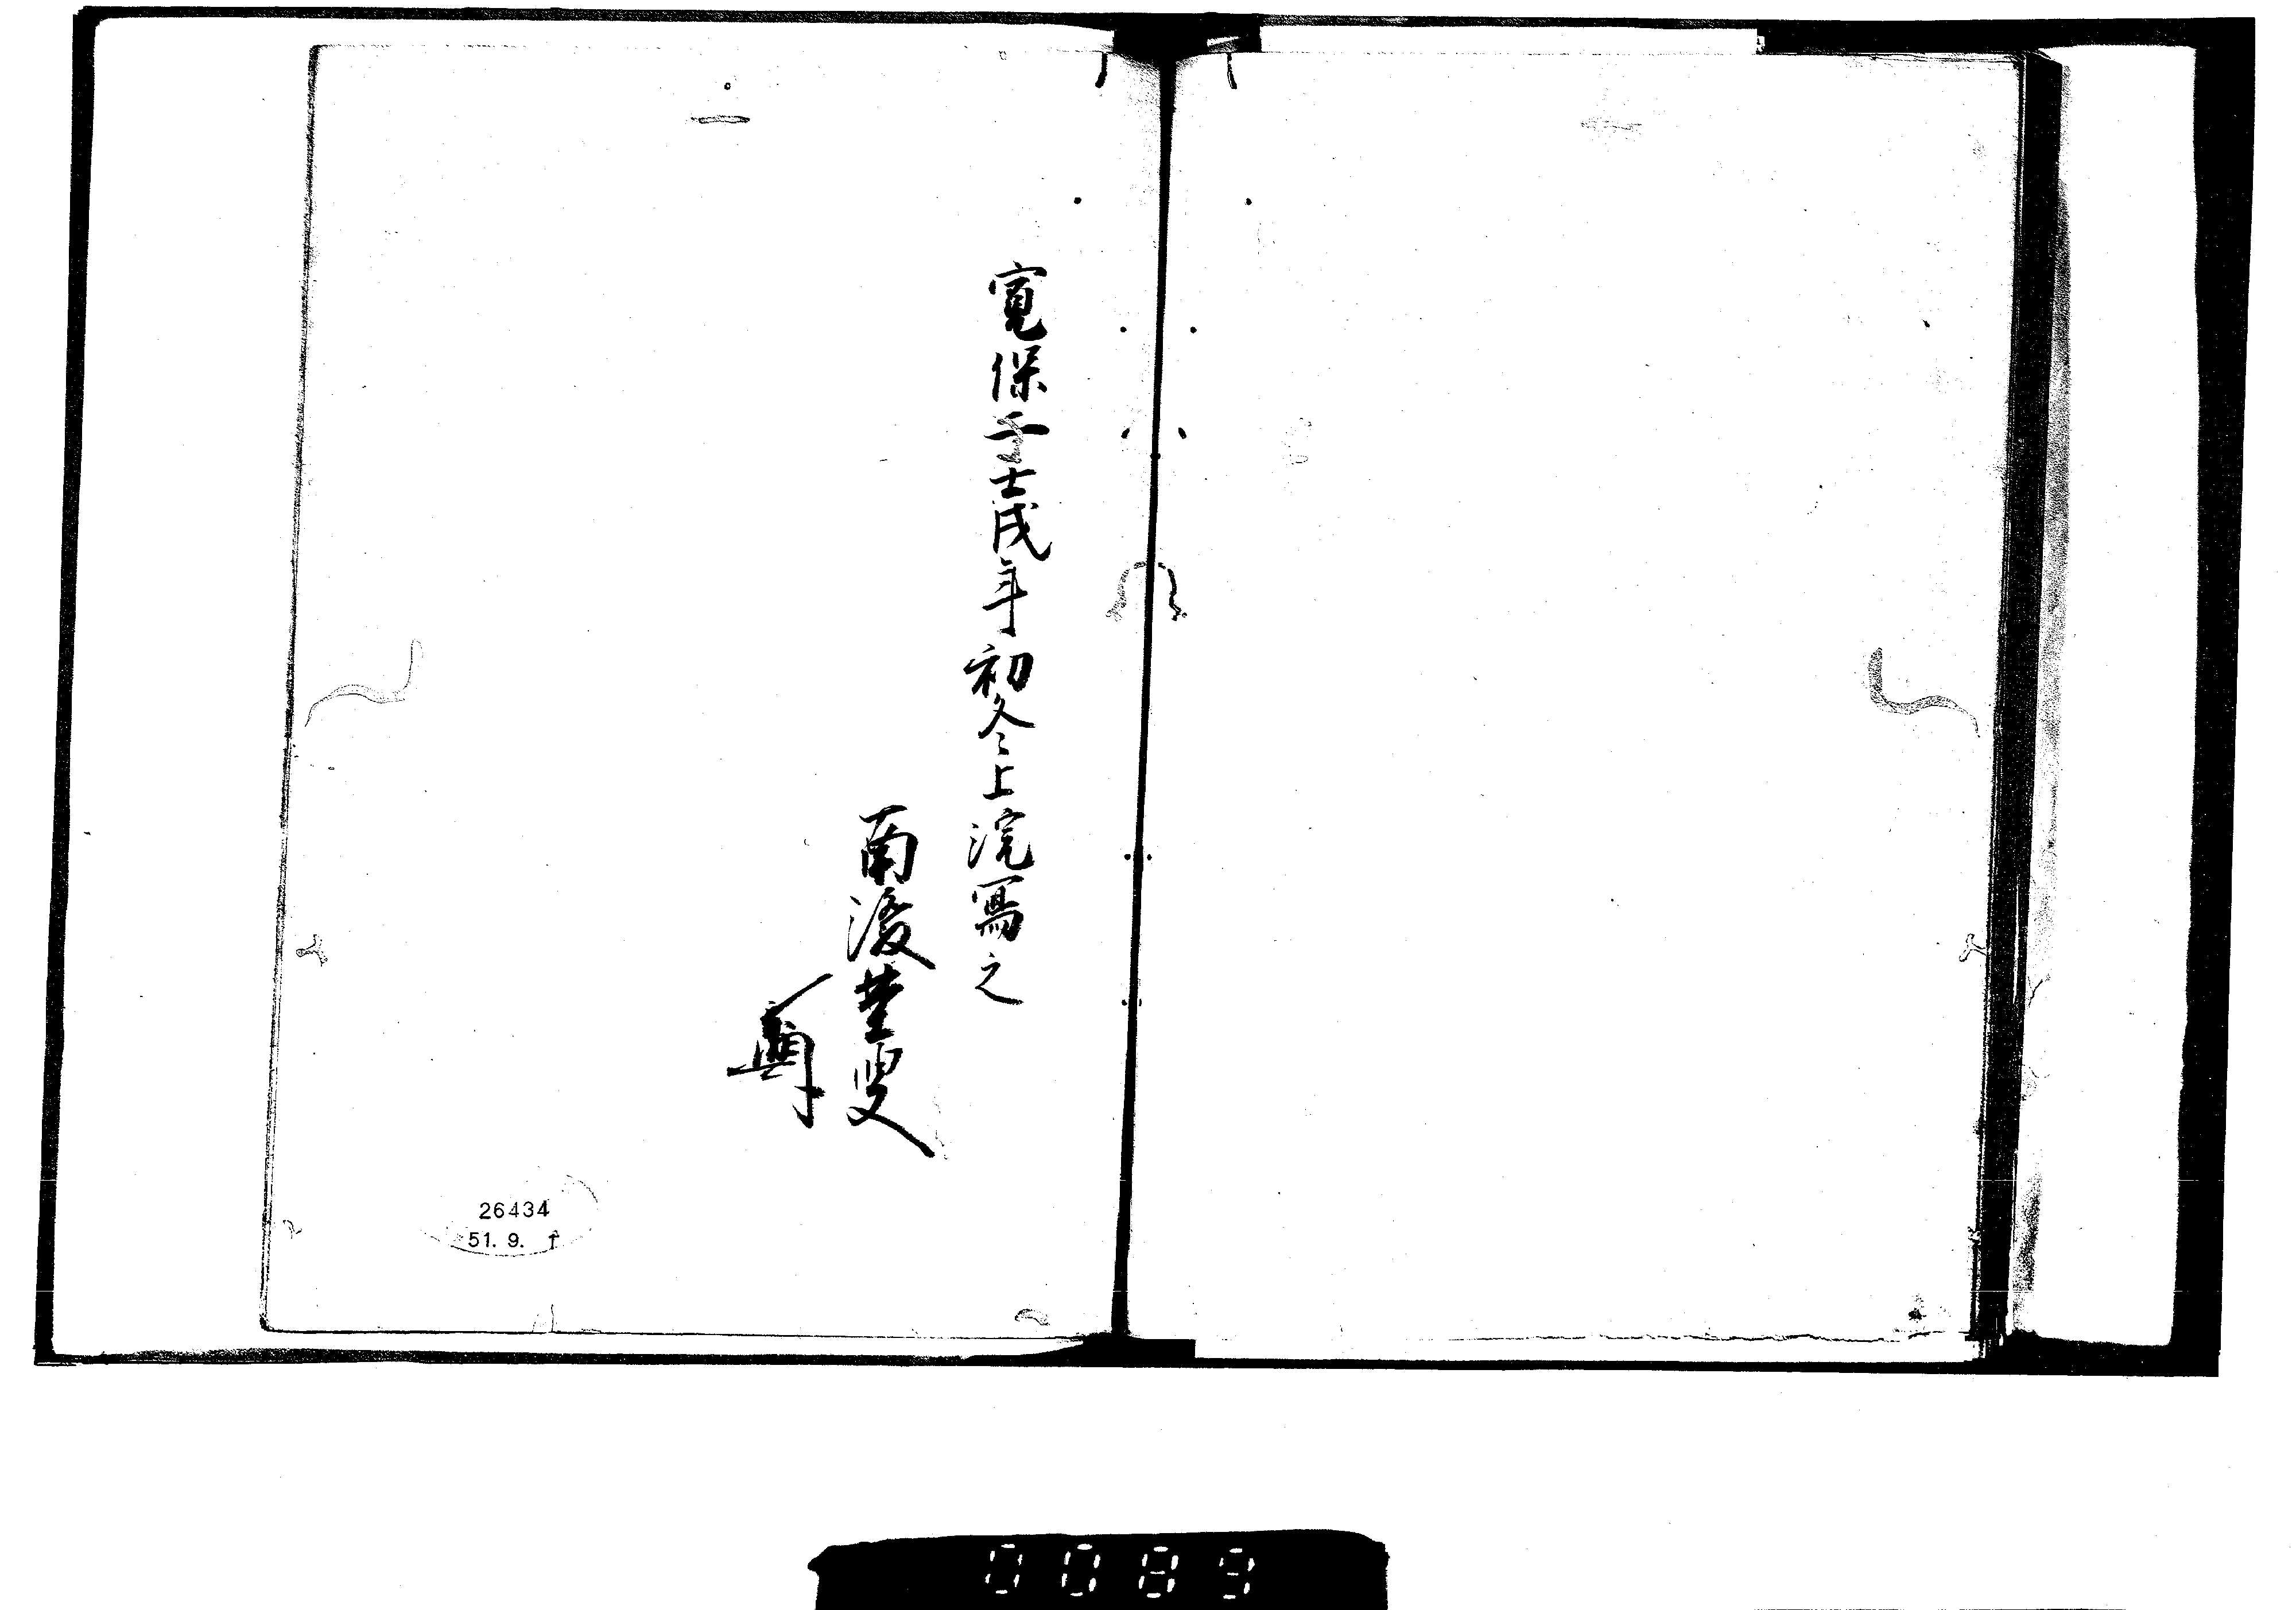 寛保壬戌年初冬上浣寫之
南
叟
26434
51. 9.
0089